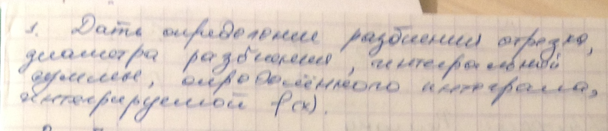 1. Дать определение разбиения отрезка,
диаметра разбиения, интегральной
суммы, определённого интеграла,
интегрируемой f(x).